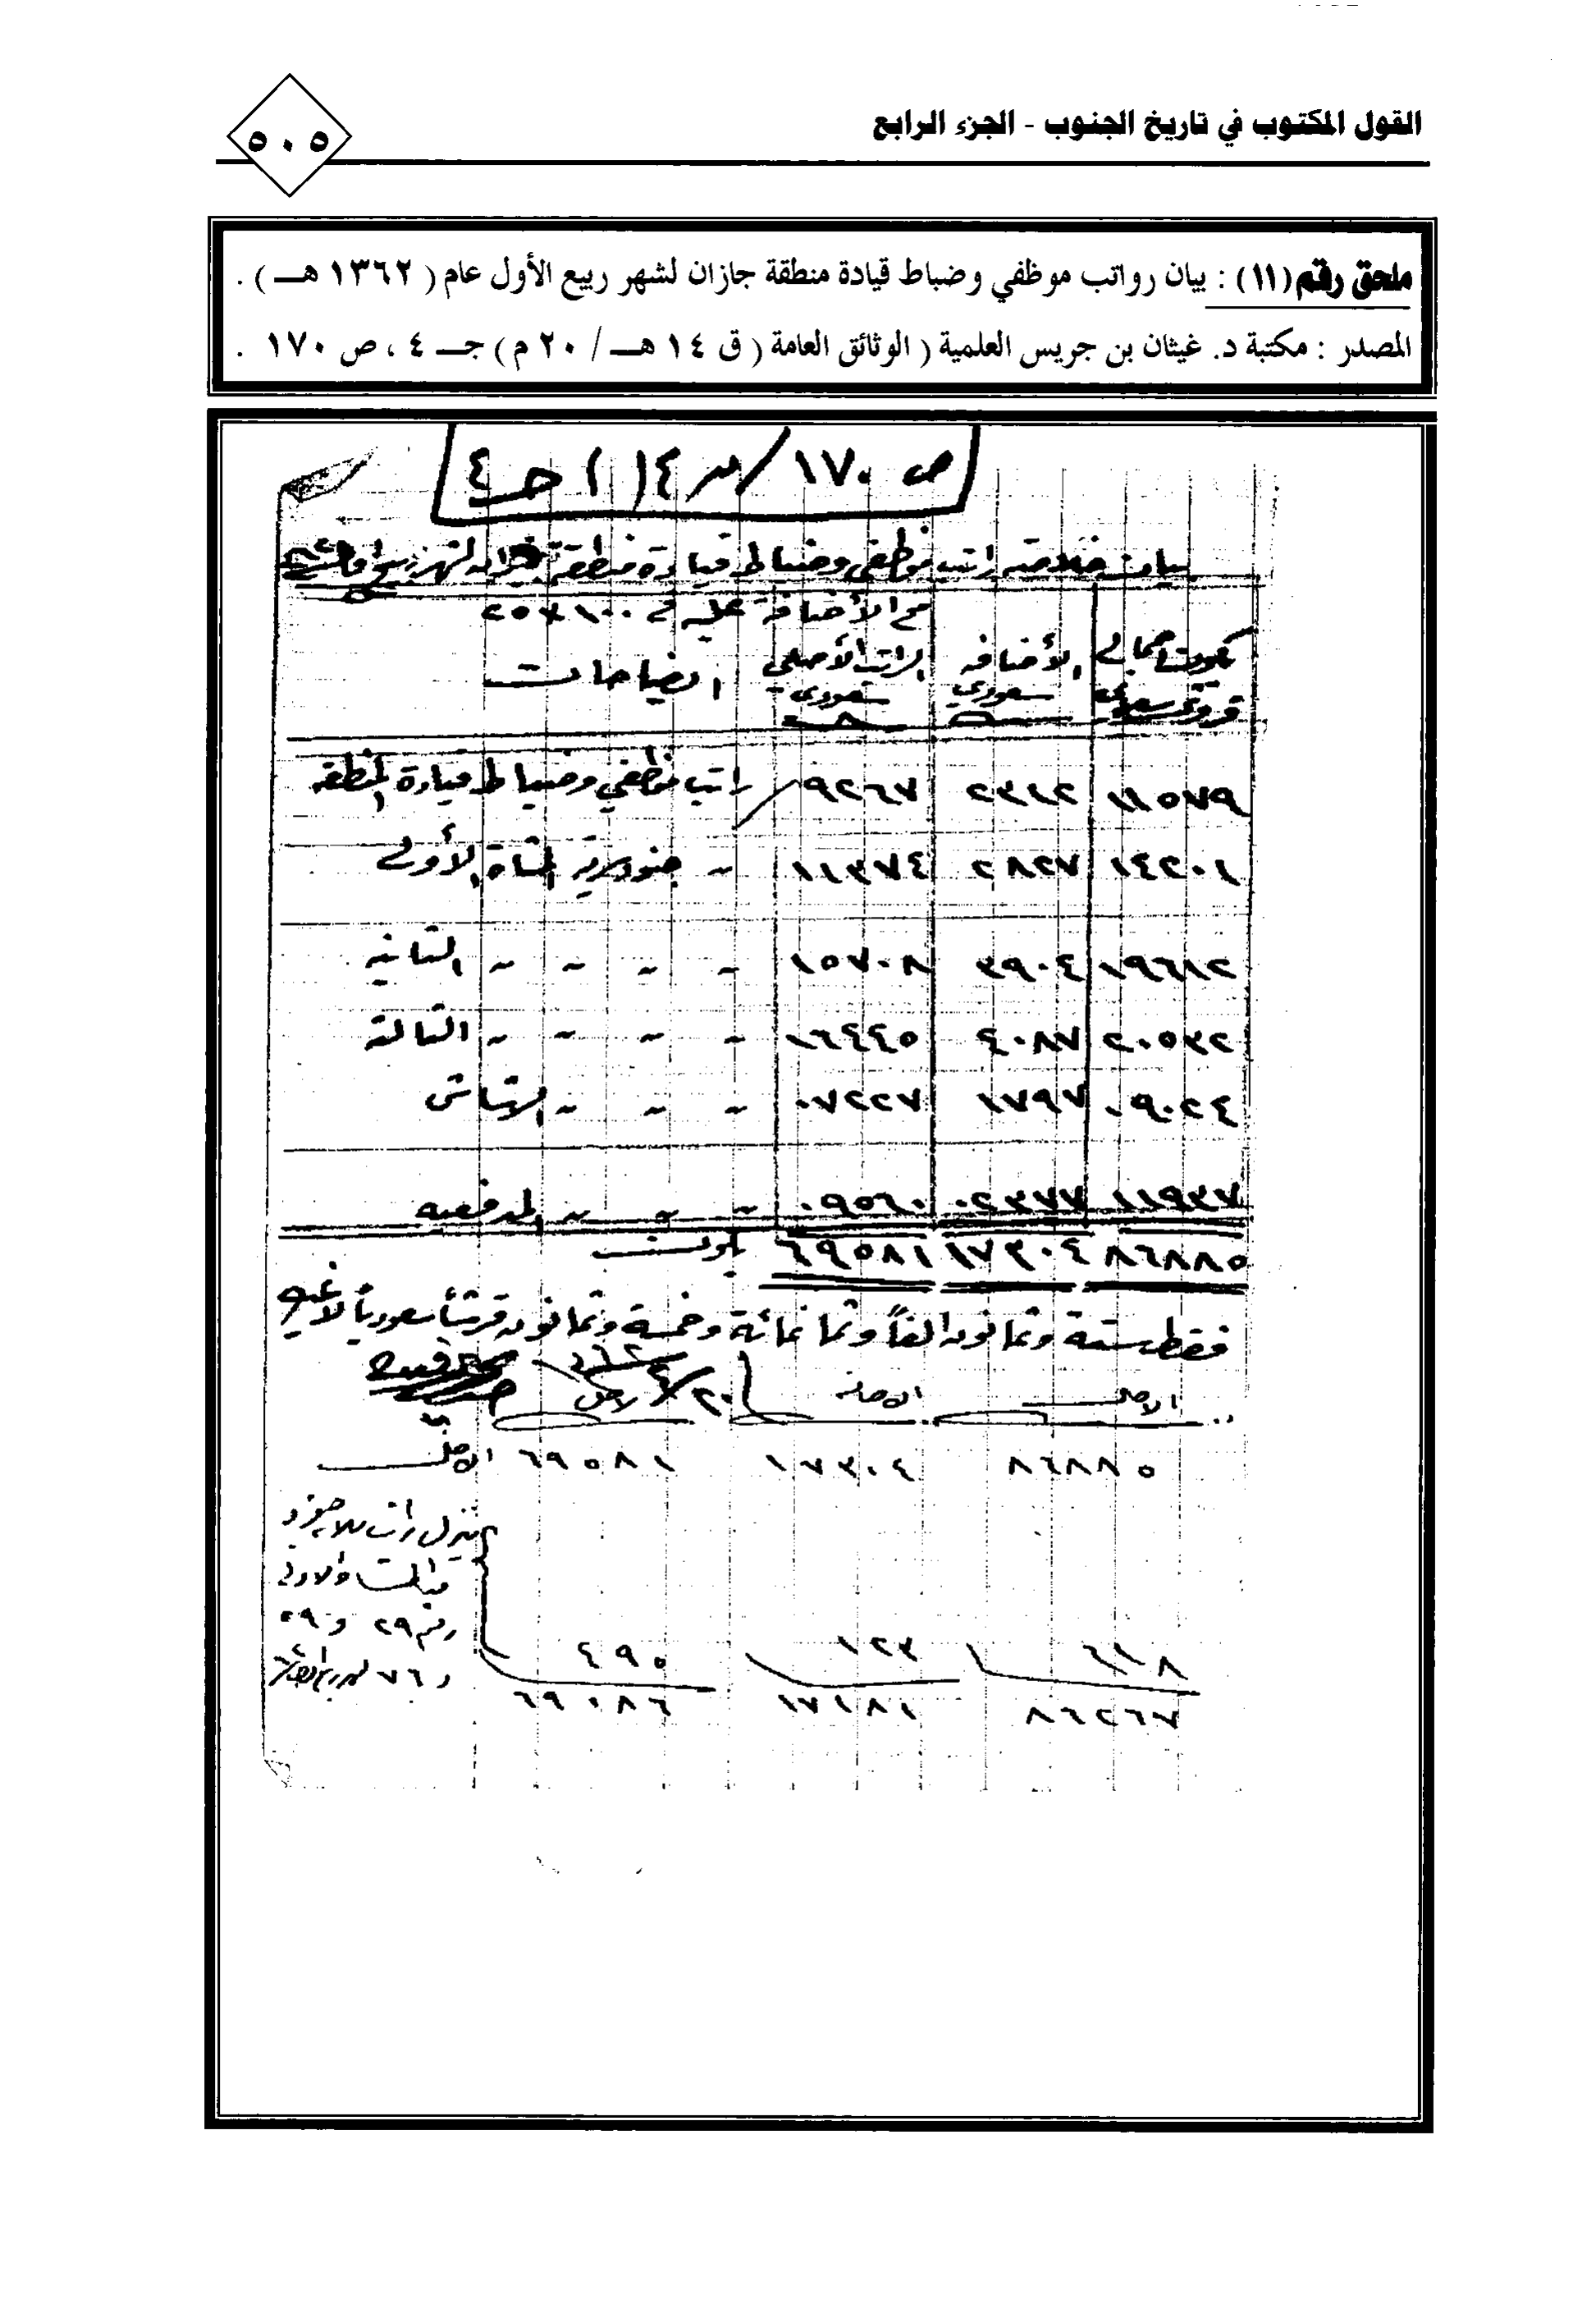 القول المكتوب في تاريخ الجنوب - الجزء الرابع
٥٠٥
ملحق رقم (١١) : بيان رواتب موظفي وضباط قيادة منطقة جازان لشهر ربيع الأول عام ( ١٣٦٢ هـ ) .
المصدر : مكتبة د. غيثان بن جريس العلمية ( الوثائق العامة ( ق ١٤ هـ / ٢٠ م ) جـ ٤ ، ص ١٧٠ .
ص ١٧٠ / ق ١٤ ( ) جـ ٤
بيان خلاصة راتب موظفي وضباط قيادة منطقة جيزان لشهر ربيع
مع الأضافة عليه في ١٠٠ ٢٥
يكون اجمالي الأضافه الراتب الأصلي ايضاحات
قروش سعودي سعودي سعودي
١١٥٧٩ ٢٣١٢ ٩٢٦٧ راتب موظفي وضباط قيادة المنطقه
١٤٢٠١ ٢٨٢٧ ١١٣٧٤ " جنود سرية المشاة الأولى
١٩٦١٢ ٣٩٠٤ ١٥٧٠٨ " " " " الثانيه
٢٠٥٣٢ ٤٠٨٧ ١٦٤٤٥ " " " " الثالثة
٠٩٠٢٤ ١٧٩٧ ٠٧٢٢٧ " " " الرشاش
١١٩٣٧ ٠٢٣٧٧ ٠٩٥٦٠ " " " المدفعيه
٨٦٨٨٥ ١٧٣٠٤ ٦٩٥٨١ يكون
فقط ستة وثمانون الفاً وثمانمائة وخمسة وثمانون قرشاً سعودياً لا غير
٢٠/٤
٨٦٨٨٥ ١٧٣٠٤ ٦٩٥٨١
ينزل راتب
رقم ٢٩ و ٣٩
٦١٨ ١٢٣ ٤٩٥ و ٧٦
٨٦٢٦٧ ١٧١٨١ ٦٩٠٨٦